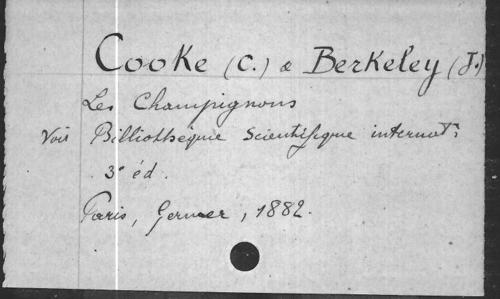 Cooke (C.) & Berkeley (J.)
Les Champignons
Voir Bibliothèque Scientifique internat.
3e éd.
Paris, Germer, 1882.